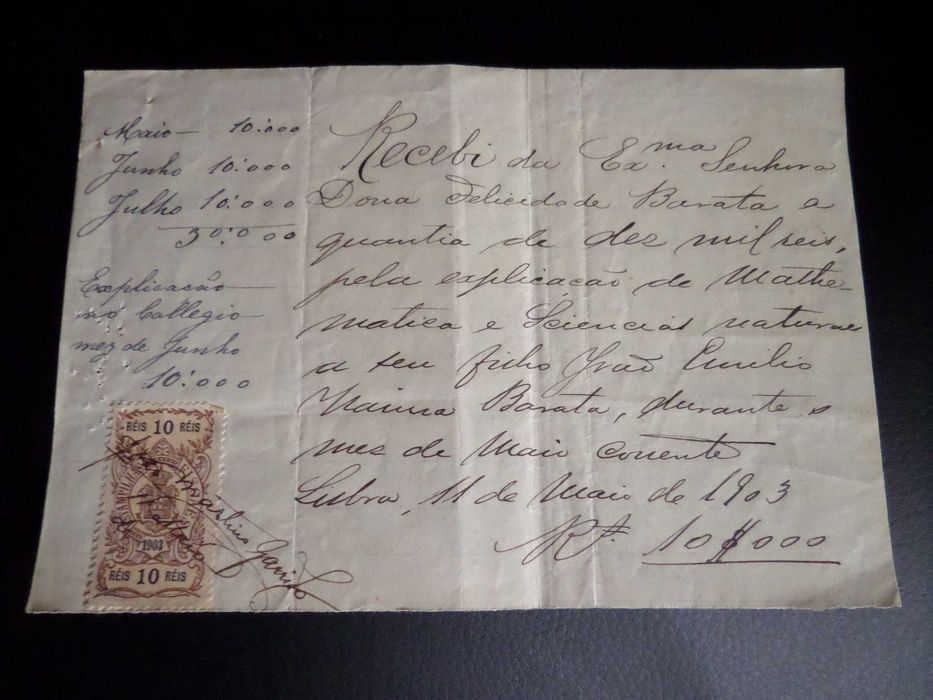 Maio — 10:000
Junho 10:000
Julho 10:000
30:000
Explicacão
no Collegio
mez de Junho
10:000
Recebi da Ex.ma Senhora
Dona Felicidade Barata a
quantia de dez mil reis,
pela explicacão de Mathe-
matica e Sciencias naturaes
a seu filho João Emilio
Barata, durante o
mez de Maio corrente
Lisboa, 11 de Maio de 1903
Rs. 10$000
RÉIS 10 RÉIS
1903
RÉIS 10 RÉIS